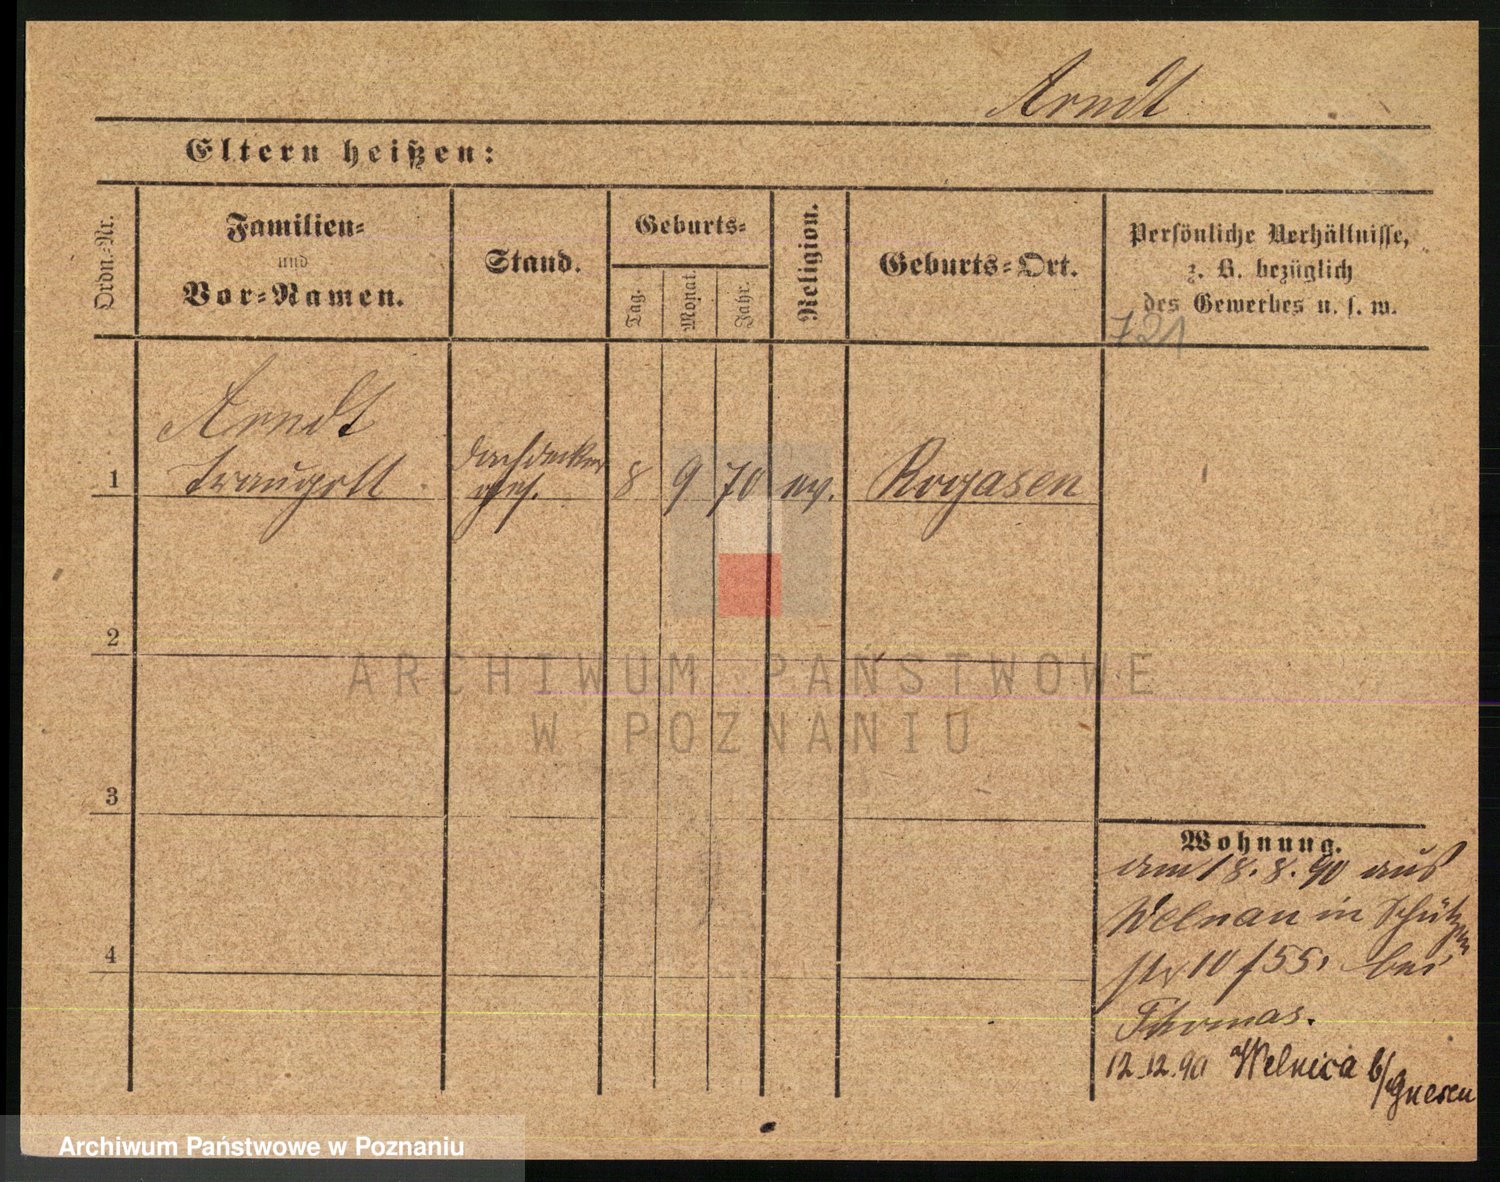 Arndt
Eltern heißen:
Ordn.-Nr.
Familien-
und
Vor-Namen.
Stand.
Geburts-
Tag.
Monat.
Jahr.
Religion.
Geburts-Ort.
Persönliche Verhältnisse,
z. B. bezüglich
des Gewerbes u. s. w.
721
Arndt
1 Traugott Dachdecker 8 9 70 ev. Rogasen
ges.
2
ARCHIWUM PAŃSTWOWE
W POZNANIU
3
Wohnung.
am 18.8.90 aus
Welnau in Schützen
str 10/55. bei
4
Thomas.
12.12.90 Welnica b/Gnesen
Archiwum Państwowe w Poznaniu